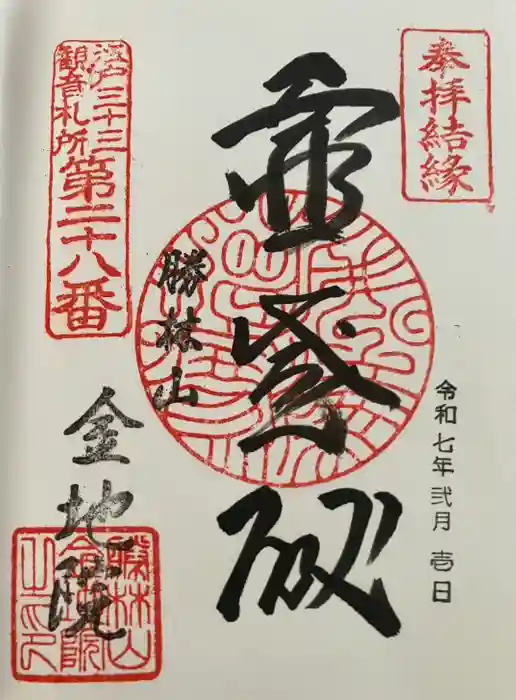 奉拝結縁
令和七年弐月壱日
殿
勝林山
金地院
江戸三十三
観音札所
第二十八番
勝林山
金地院
之印